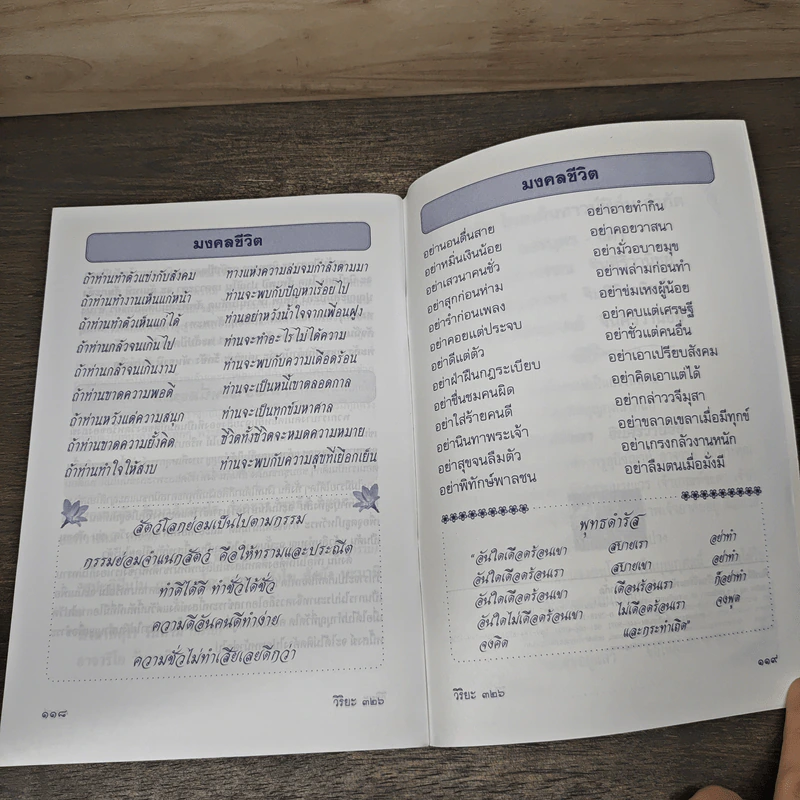 มงคลชีวิต
ถ้าท่านทำตัวแข่งกับสังคม ทางแห่งความล่มจมกำลังตามมา
ถ้าท่านทำงานเห็นแก่หน้า ท่านจะพบกับปัญหาเรื่อยไป
ถ้าท่านทำตัวเห็นแก่ได้ ท่านอย่าหวังน้ำใจจากเพื่อนฝูง
ถ้าท่านกลัวจนเกินไป ท่านจะทำอะไรไม่ได้ความ
ถ้าท่านกล้าจนเกินงาม ท่านจะพบกับความเดือดร้อน
ถ้าท่านขาดความพอดี ท่านจะเป็นหนี้เขาตลอดกาล
ถ้าท่านหวังแต่ความสนุก ท่านจะเป็นทุกข์มหาศาล
ถ้าท่านขาดความยั้งคิด ชีวิตทั้งชีวิตจะหมดความหมาย
ถ้าท่านทำใจให้สงบ ท่านจะพบกับความสุขที่เยือกเย็น
สัตว์โลกย่อมเป็นไปตามกรรม
กรรมย่อมจำแนกสัตว์ คือให้ทรามและประณีต
ทำดีได้ดี ทำชั่วได้ชั่ว
ความดีอันคนดีทำง่าย
ความชั่วไม่ทำเสียเลยดีกว่า
๑๑๘ วิริยะ ๓๒๖
มงคลชีวิต
อย่านอนตื่นสาย อย่าอายทำกิน
อย่าหมิ่นเงินน้อย อย่าคอยวาสนา
อย่าเสวนาคนชั่ว อย่ามั่วอบายมุข
อย่าสุกก่อนห่าม อย่าพล่ามก่อนทำ
อย่ารำก่อนเพลง อย่าข่มเหงผู้น้อย
อย่าคอยแต่ประจบ อย่าคบแต่เศรษฐี
อย่าดีแต่ตัว อย่าชั่วแต่คนอื่น
อย่าฝ่าฝืนกฎระเบียบ อย่าเอาเปรียบสังคม
อย่าชื่นชมคนผิด อย่าคิดเอาแต่ได้
อย่าใส่ร้ายคนดี อย่ากล่าววจีมุสา
อย่านินทาพระเจ้า อย่าขลาดเขลาเมื่อมีทุกข์
อย่าสุขจนลืมตัว อย่าเกรงกลัวงานหนัก
อย่าพิทักษ์พาลชน อย่าลืมตนเมื่อมั่งมี
พุทธดำรัส
“อันใดเดือดร้อนเขา สบายเรา อย่าทำ
อันใดเดือดร้อนเรา สบายเขา อย่าทำ
อันใดเดือดร้อนเขา เดือนร้อนเรา ก็อย่าทำ
อันใดไม่เดือดร้อนเขา ไม่เดือดร้อนเรา จงพูด
จงคิด และกระทำเถิด”
วิริยะ ๓๒๖ ๑๑๙